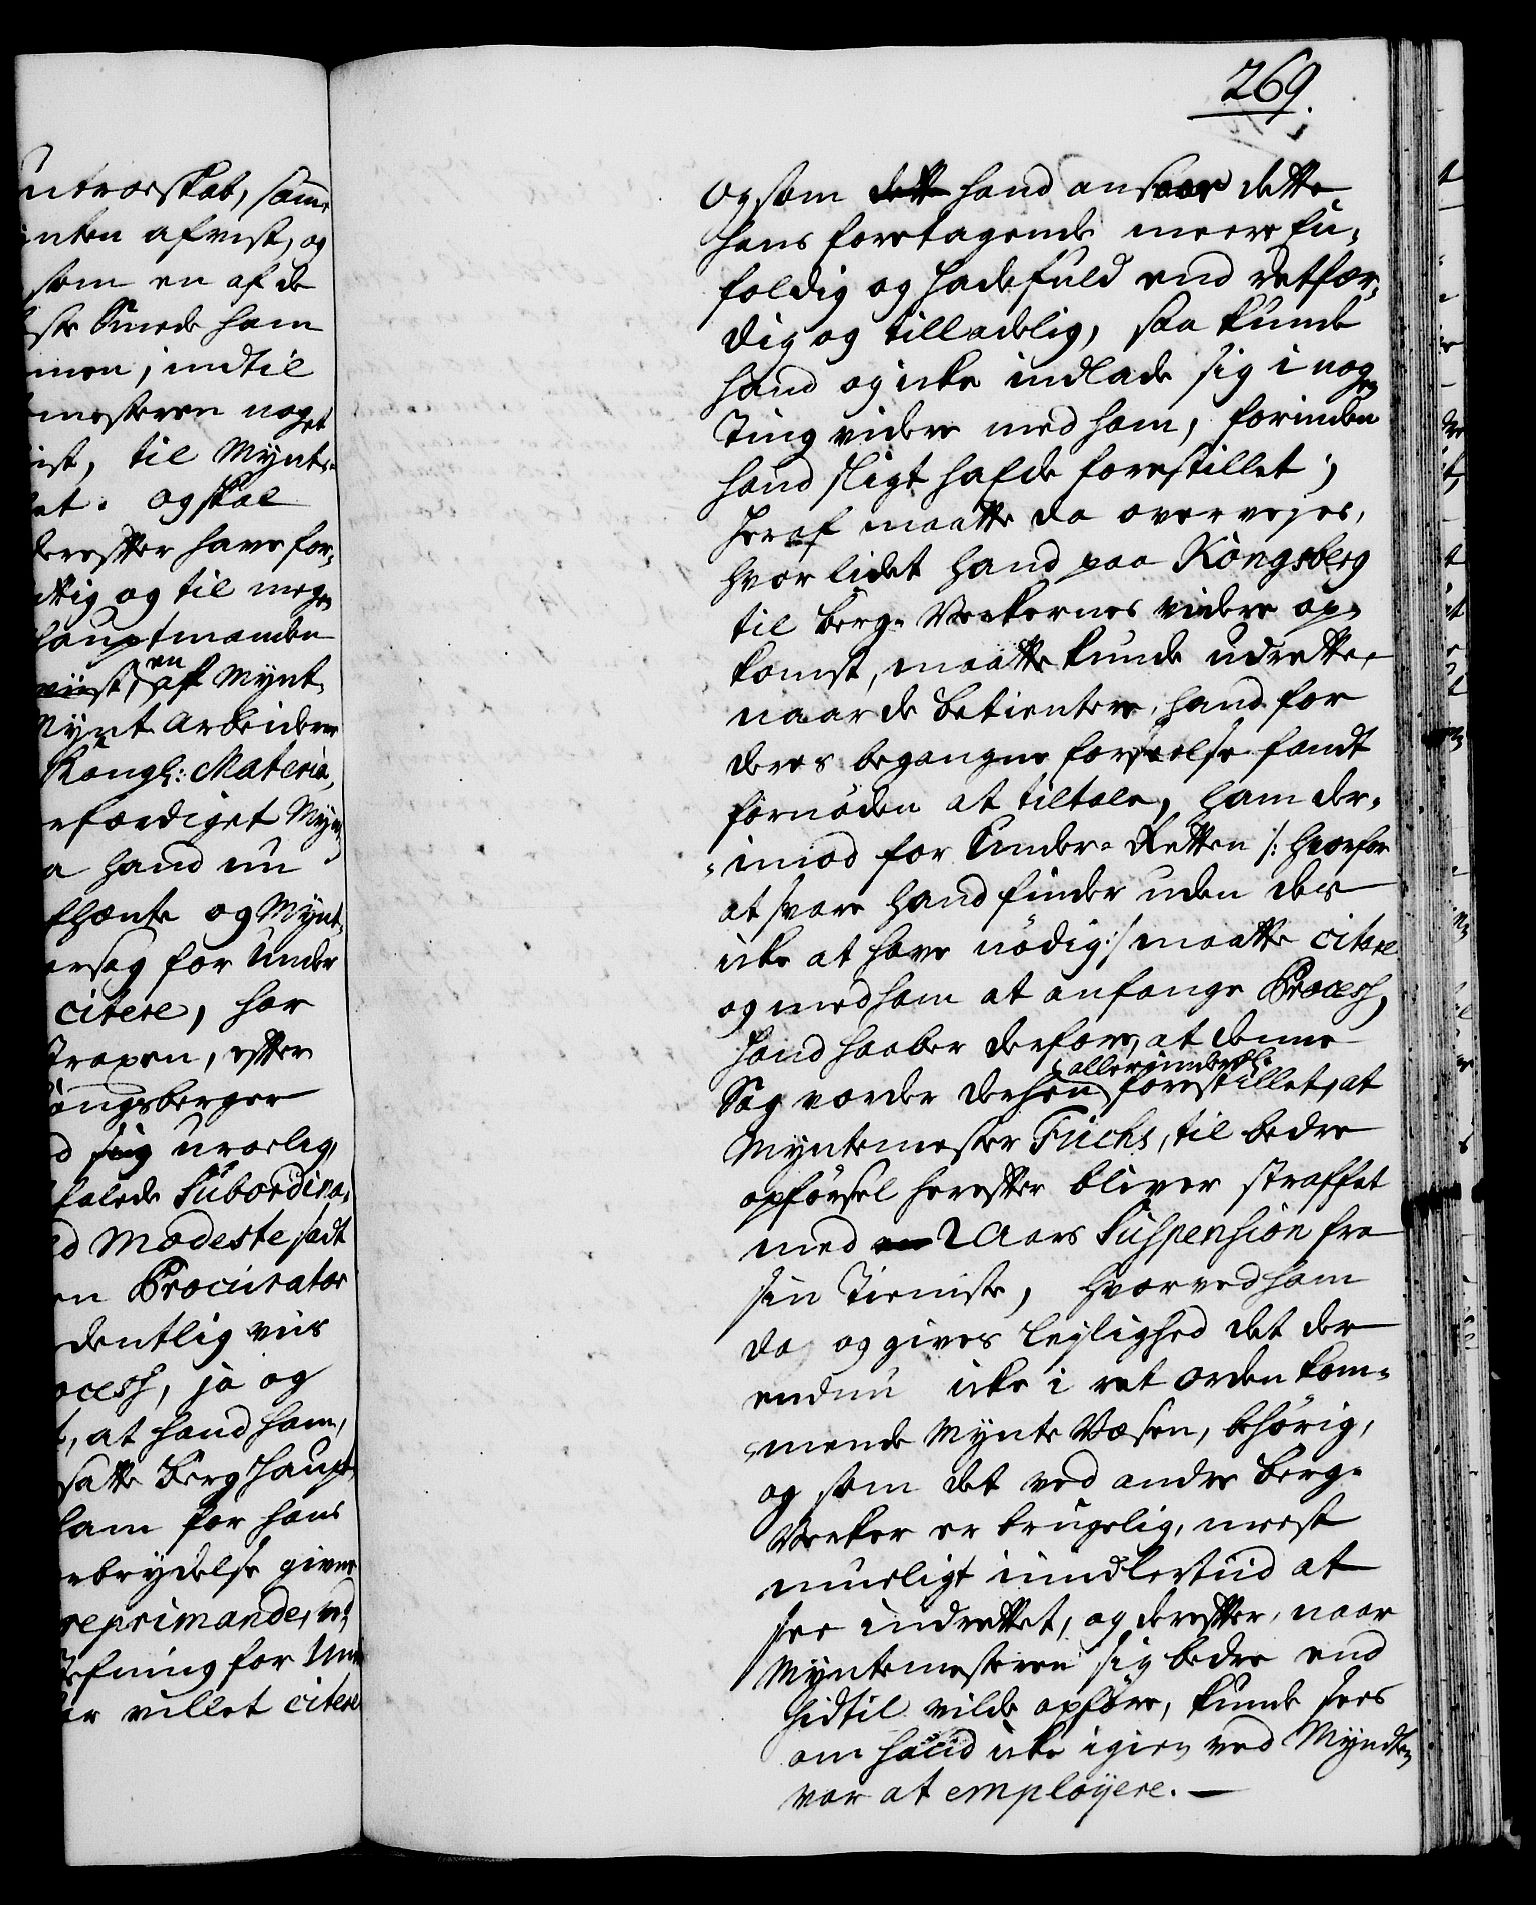 ntroeskab, sam¬
nten afvist, og
som en af de
Smede ham
men, indtil
mesteren noget
ist, til Mynt¬
et. og skal
derefter have for¬
ttig og til megen
hauptmanden
viist, en af Mynt¬
Mynt Arbeiderne
Kongl: Materia¬
rfærdiget Myn¬
a hand nu
thænte og Mynt¬
ersag for Under
citere, har
trapen, efter
Kongsberger
d sig uroelig,
falede Subordina¬
d Modeste, sadt
en Procurator
dentlig viis
ocess, ja og
t, at hand ham,
satte Berghaupt¬
ham for hans
rbrydelse giver
reprimande, ved
fning for Un¬
er villet citere
269.
og som dette hand ansaae dette
hans foretagende meere fu,
foldig og hadefuld end retfær¬
dig og tilladelig, saa kunde
hand og icke indlade sig i nogen
Ting videre med ham, forinden
hand sligt hafde forestillet;
heraf maatte da overvejes,
hvor lidet hand paa Kongsberg
til Berg-Verkernes videre op¬
komst, maatte kunde udrette,
naar de betientere, hand for
deres begangne forseelse fandt
fornøden at tiltale, ham der¬
imod for Under-Retten /: hvorfor
at svare hand finder uden des
icke at have nødig :/ maatte citere
og med ham at anfange Process,
hand haaber derfore, at denne
Sag vorder derhen allerunderd: forestillet, at
Myntemester Fuchs, til bedre
opførsel herefter bliver straffet
med en 2 Aars Suspension fra
sin Tieniste, hvorved ham
da og gives lejlighed det der
endnu icke i ret orden kom¬
mende Mynte Væsen, behørig,
og som det ved andre Berg-
Verker er brugelig, meest
mueligt imidlertiid at
see indrettet, og derefter, naar
Myntemesteren sig bedre end
hidtil vilde opføre, kunde sees
om hand icke igien ved Myndten
var at employere. —